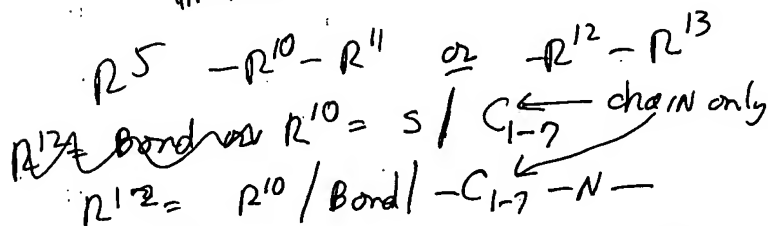 R⁵ -R¹⁰-R¹¹ or -R¹²-R¹³
R¹² Bond R¹⁰ = S / C₁₋₇ ← chain only
R¹² = R¹⁰ / Bond / -C₁₋₇-N-